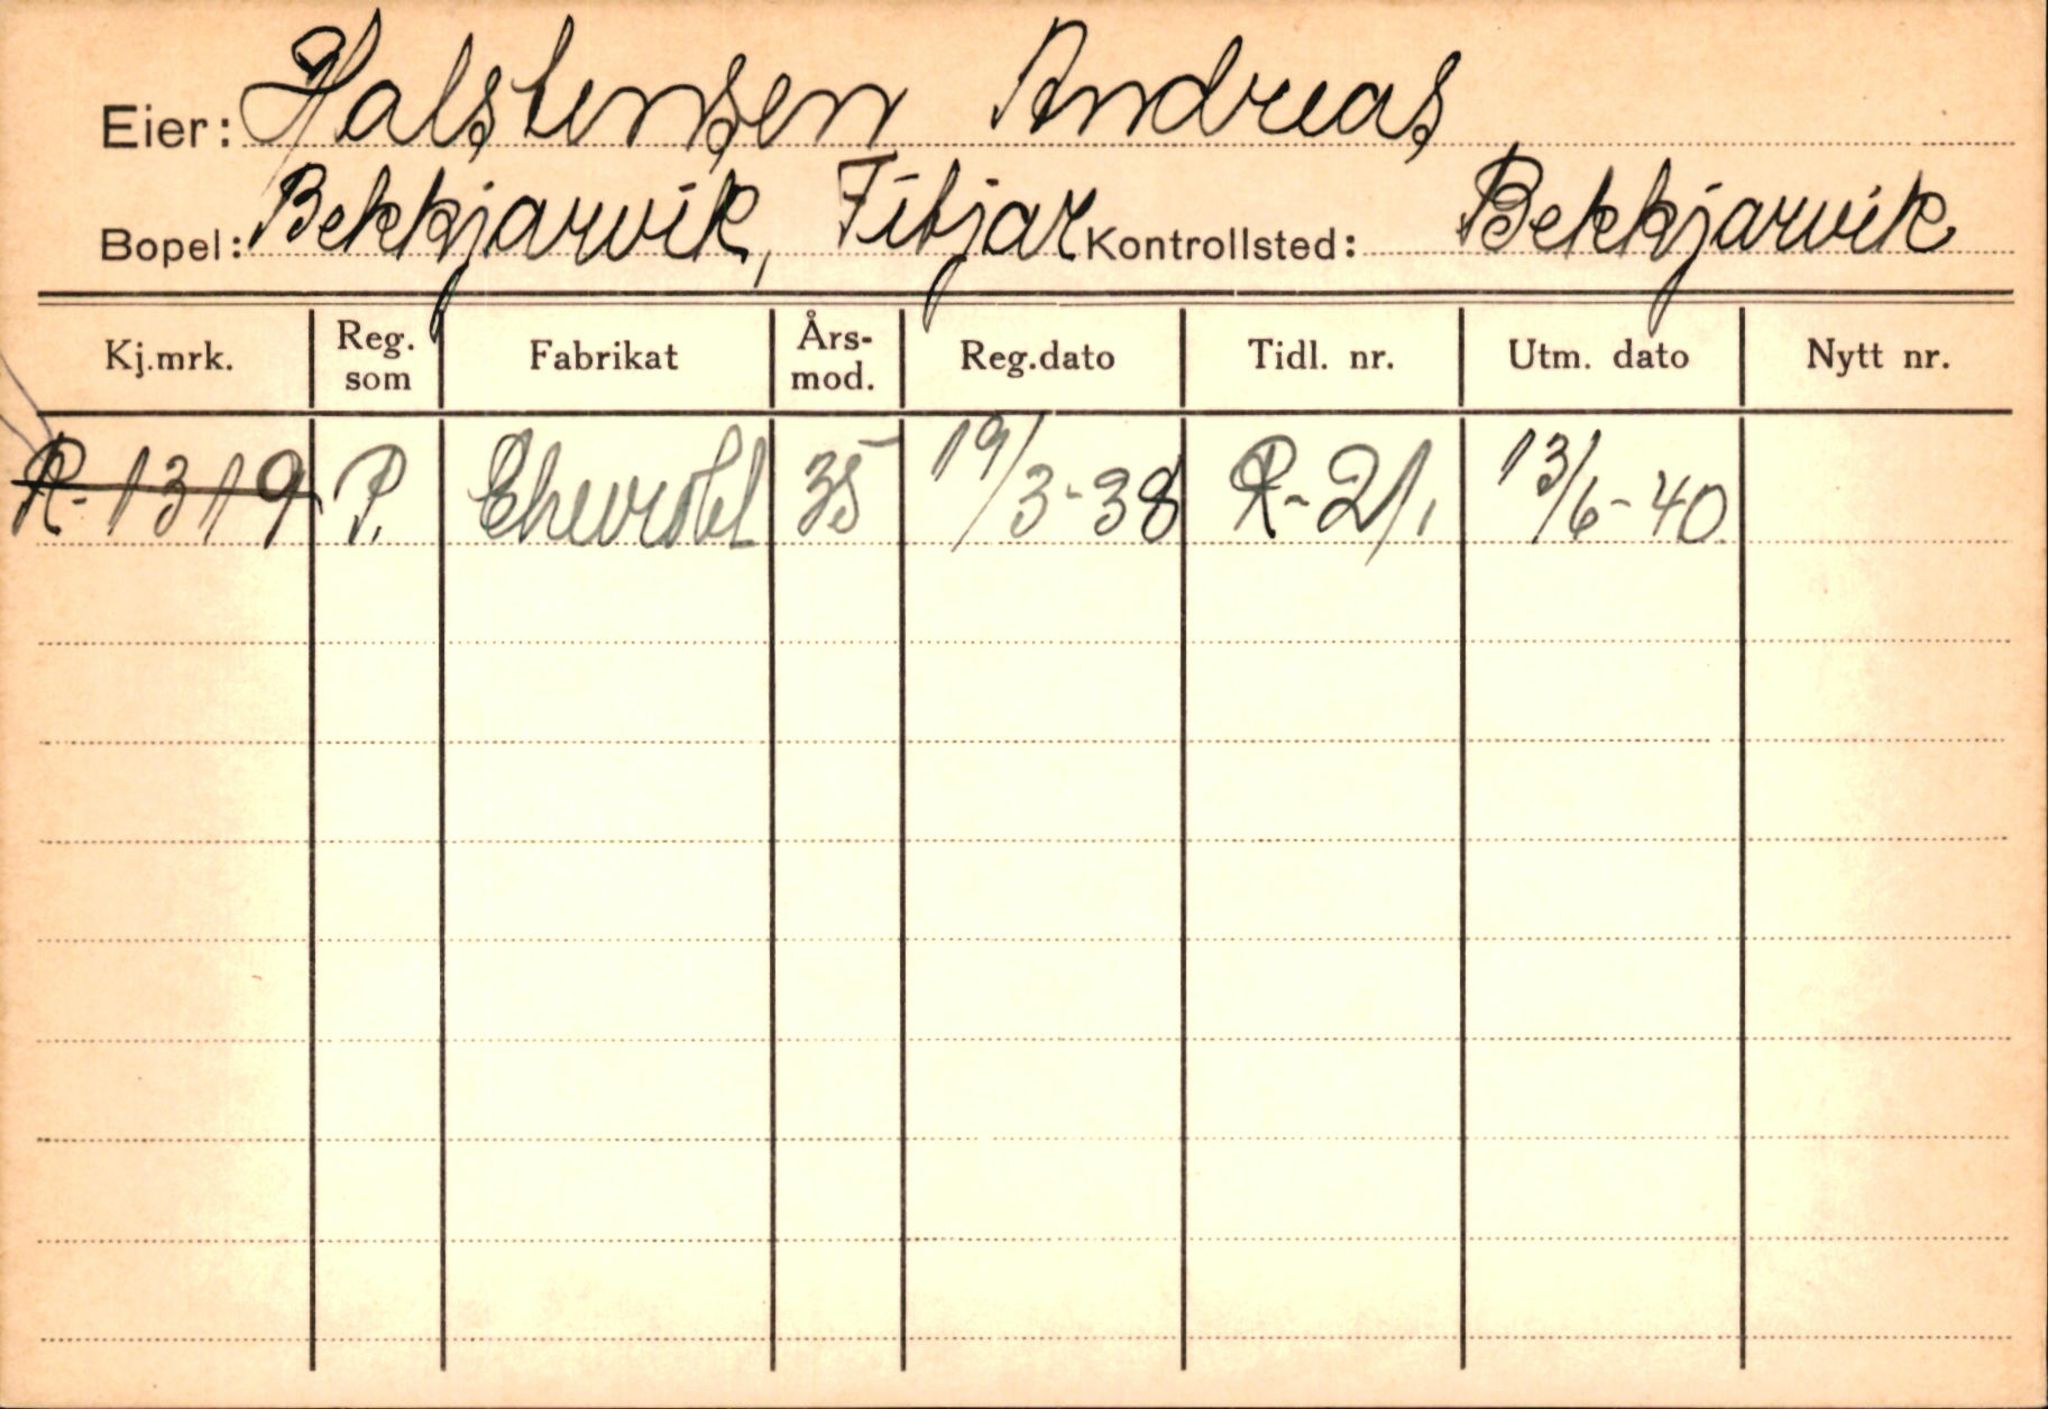 Eier: Halstensen Andreas
Bopel: Bekkjarvik, Fitjar Kontrollsted: Bekkjarvik
Kj.mrk. Reg. som Fabrikat Års-mod. Reg.dato Tidl. nr. Utm. dato Nytt nr.
R-1319 P. Chevrolet 35 19/3-38 R-211 13/6-40